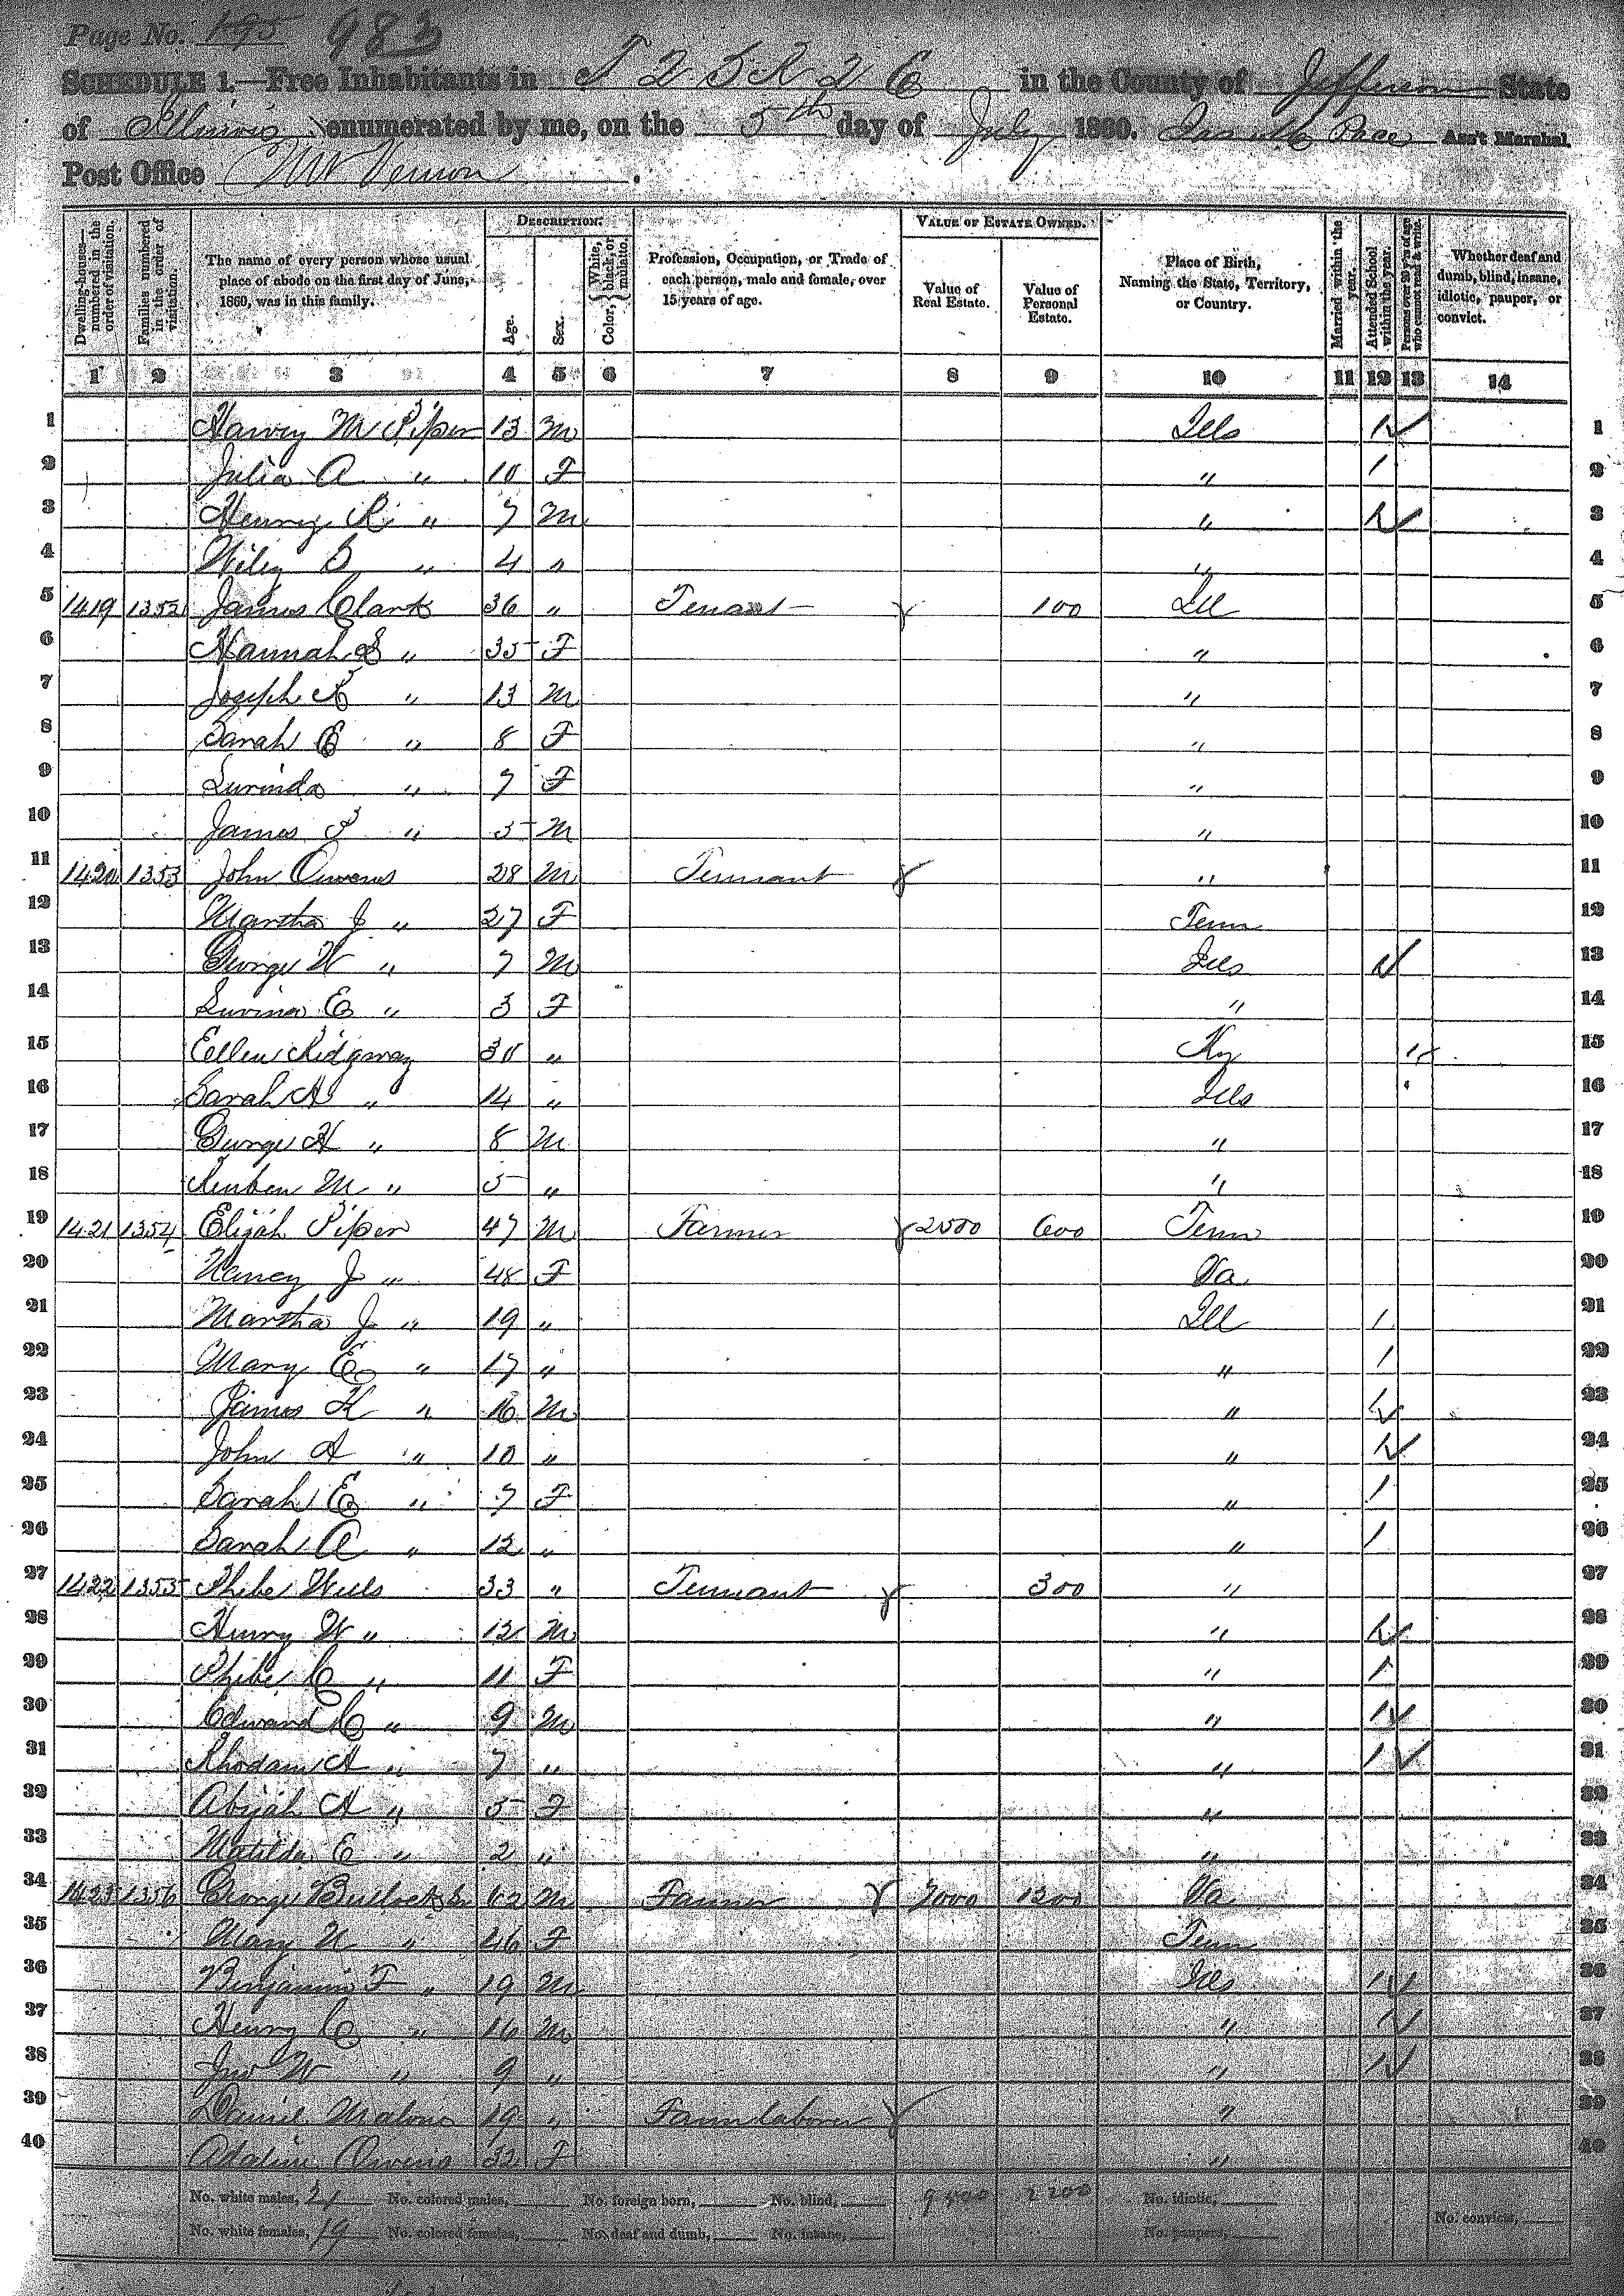 Page No. 195 983
SCHEDULE 1.—Free Inhabitants in T 2 S R 2 E in the County of Jefferson State
of Illinois enumerated by me, on the 5th day of July 1860. Pace Ass't Marshal.
Post Office Mt Vernon.
Dwelling-houses—numbered in the order of visitation. Families numbered in the order of visitation. The name of every person whose usual place of abode on the first day of June, 1860, was in this family. DESCRIPTION. Age. Sex. Color, { White, black, or mulatto. Profession, Occupation, or Trade of each person, male and female, over 15 years of age. VALUE OF ESTATE OWNED. Value of Real Estate. Value of Personal Estate. Place of Birth, Naming the State, Territory, or Country. Married within the year. Attended School within the year. Persons over 20 y'rs of age who cannot read & write. Whether deaf and dumb, blind, insane, idiotic, pauper, or convict.
1 2 3 4 5 6 7 8 9 10 11 12 13 14
1 Harvey M Piper 13 M Ills 1 1
2 Julia A " 10 F " 1 2
3 Henry R " 7 M " 1 3
4 Wiley B " 4 " " 4
5 1419 1352 James Clark 36 " Tenant 100 Ill 5
6 Hannah S " 35 F " 6
7 Joseph R " 13 M " 7
8 Sarah E " 8 F " 8
9 Lurinda " 7 F " 9
10 James P " 5 M " 10
11 1420 1353 John Owens 28 M Tennant " 11
12 Martha J " 27 F Tenn 12
13 George W " 7 M Ills 1 13
14 Luvina E " 3 F " 14
15 Ellen Ridgway 30 " Ky 1 15
16 Sarah A " 14 " Ills 16
17 George H " 8 M " 17
18 Reuben M " 5 " " 18
19 1421 1354 Elijah Piper 47 M Farmer 2500 600 Tenn 19
20 Nancy J " 48 F Va 20
21 Martha J " 19 " Ill 1 21
22 Mary E " 17 " " 1 22
23 James K " 16 M " 1 23
24 John A " 10 " " 1 24
25 Sarah E " 7 F " 1 25
26 Sarah A " 12 " " 1 26
27 1422 1355 Phebe Wells 33 " Tennant 300 " 27
28 Henry W " 12 M " 1 28
29 Phebe C " 11 F " 1 29
30 Edward C " 9 M " 1 30
31 Rhodam A " 7 " " 1 31
32 Abijah A " 5 F " 32
33 Matilda E " 2 " " 33
34 1423 1356 George Bullock Sr 62 M Farmer 7000 1200 Va 34
35 Mary N " 46 F Tenn 35
36 Benjamin F " 19 M Ills 1 36
37 Henry C " 16 M " 1 37
38 Jno W " 9 " " 1 38
39 Daniel Malone 19 " Farm laborer " 39
40 Adaline Owens 32 F " 40
No. white males, 21 No. colored males, No. foreign born, No. blind, 9500 2200 No. idiotic,
No. white females, 19 No. colored females, No. deaf and dumb, No. insane, No. paupers, No. convicts,